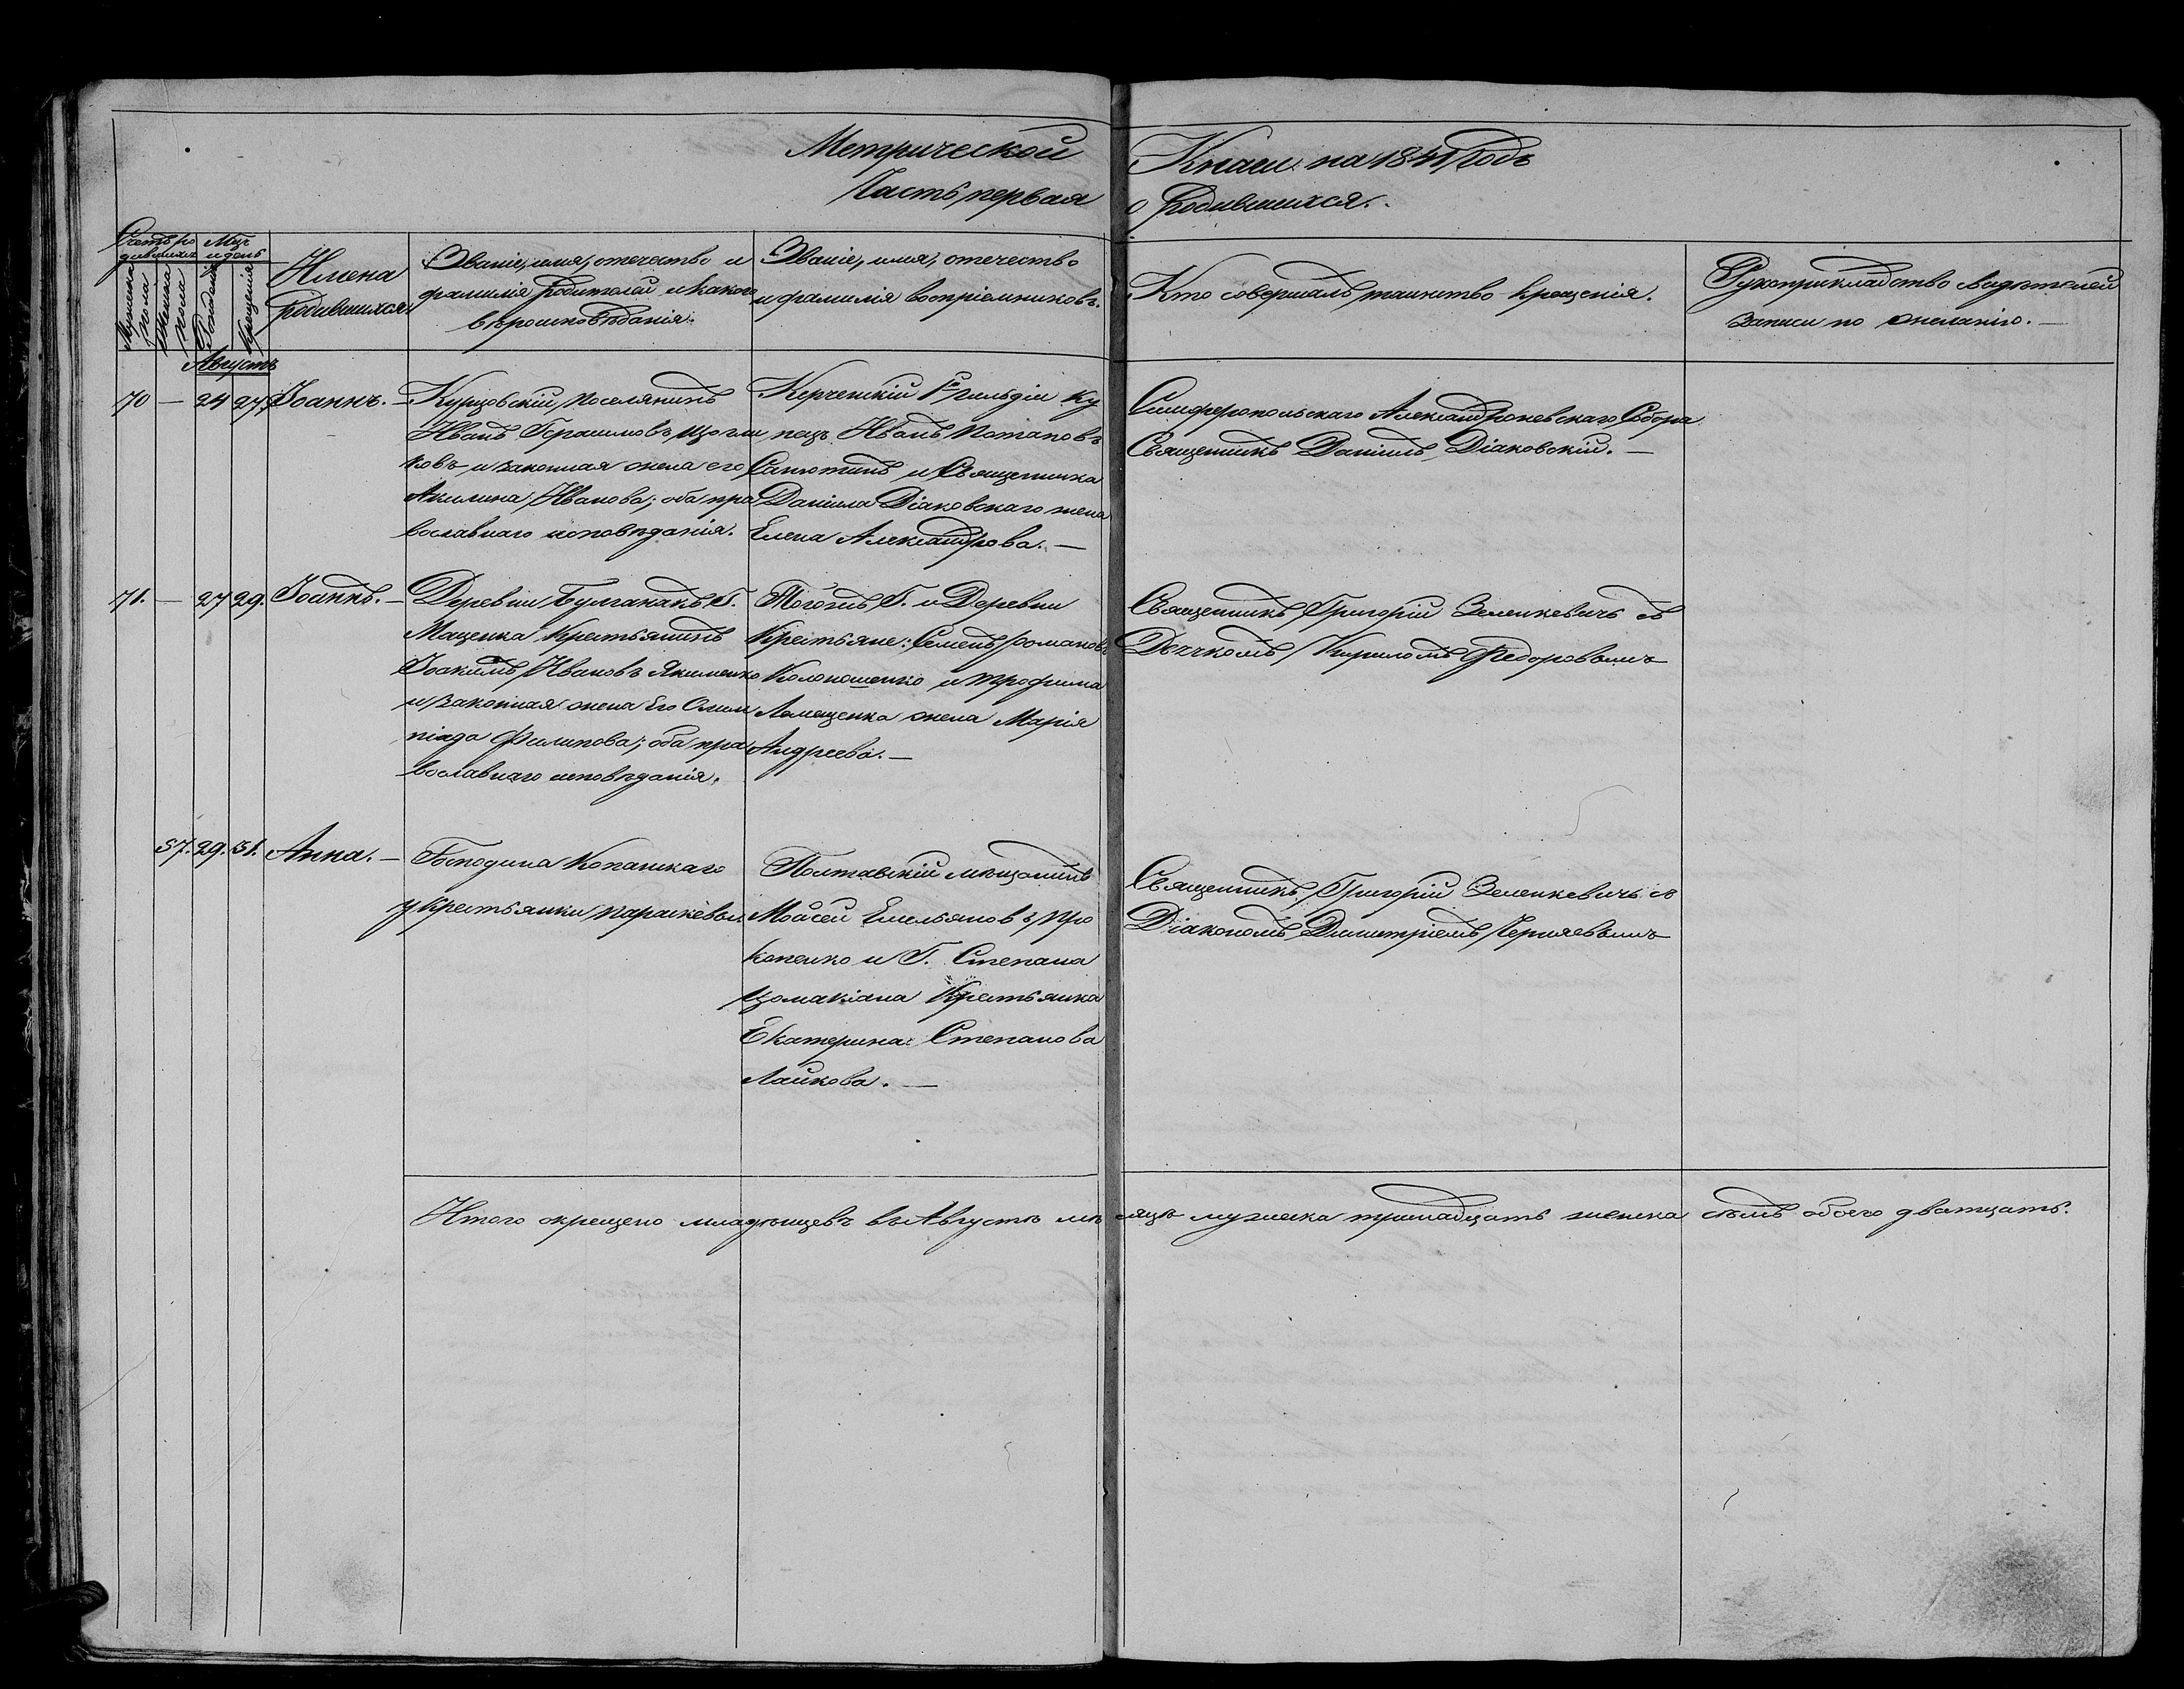 Метрической Книги на 1841 Годъ
Часть первая о Родившихся.
Счетъ ро
дившихся
Мужеска
пола
Женска
пола
Мцъ
и день
Рожденія
Крещенія
Имена
Родившихся
Званіе, имя, отечество и
фамилія родителей и какого
вѣроисповѣданія.
Званіе, имя, отечество
и фамилія воспріемниковъ.
Кто совершалъ таинство крещенія.
Рукоприкладство свидѣтелей
записи по желанію. —
Августъ
70 — 24 27 Іоаннъ. —
Курцовскій поселянинъ
Иванъ Герасимовъ Що
ковъ и законная жена его
Акилина Иванова; оба пра
вославнаго исповѣданія.
Керченскій 1й гильдіи ку
пецъ Иванъ Потаповъ
и Священника
Даніила Діаковскаго жена
Елена Александрова. —
Симферопольскаго Александроневскаго Собора
Священникъ Даніилъ Діаковскій. —
71. — 27 29. Іоаннъ. —
Деревни Булганакъ Г.
Маценка Крестьянинъ
Іоакимъ Ивановъ Якименко
и законная жена Его Олим
піяда Филипова; оба пра
вославнаго исповѣданія.
Тогожъ Г. и Деревни
Крестьяне: Семенъ Романовъ
Колоношенко и Трофима
Ломаценка жена Марія
Андреева. —
Священникъ Григорій Зеленкевичъ съ
Дьячкомъ Кириломъ Федоровымъ
57. 29. 31. Анна. —
Господина Копанскаго
у крестьянки Параскевы
Полтавскій мѣщанинъ
Моисей Емельяновъ Про
копенко и Г. Степана
Цомакіана Крестьянка
Екатерина Степанова
Лайкова. —
Священникъ Григорій Зеленкевичъ съ
Діакономъ Димитріемъ Черняевымъ
Итого окрещено младенцевъ въ Августѣ мѣсяцѣ мужеска тринадцать женска семь обоего дватцать.